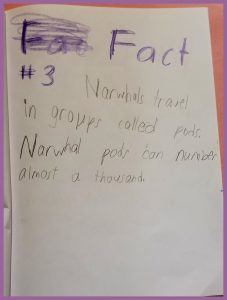 Fact
#3
Narwhals travel
in groups called pods.
Narwhal pods can number
almost a thousand.